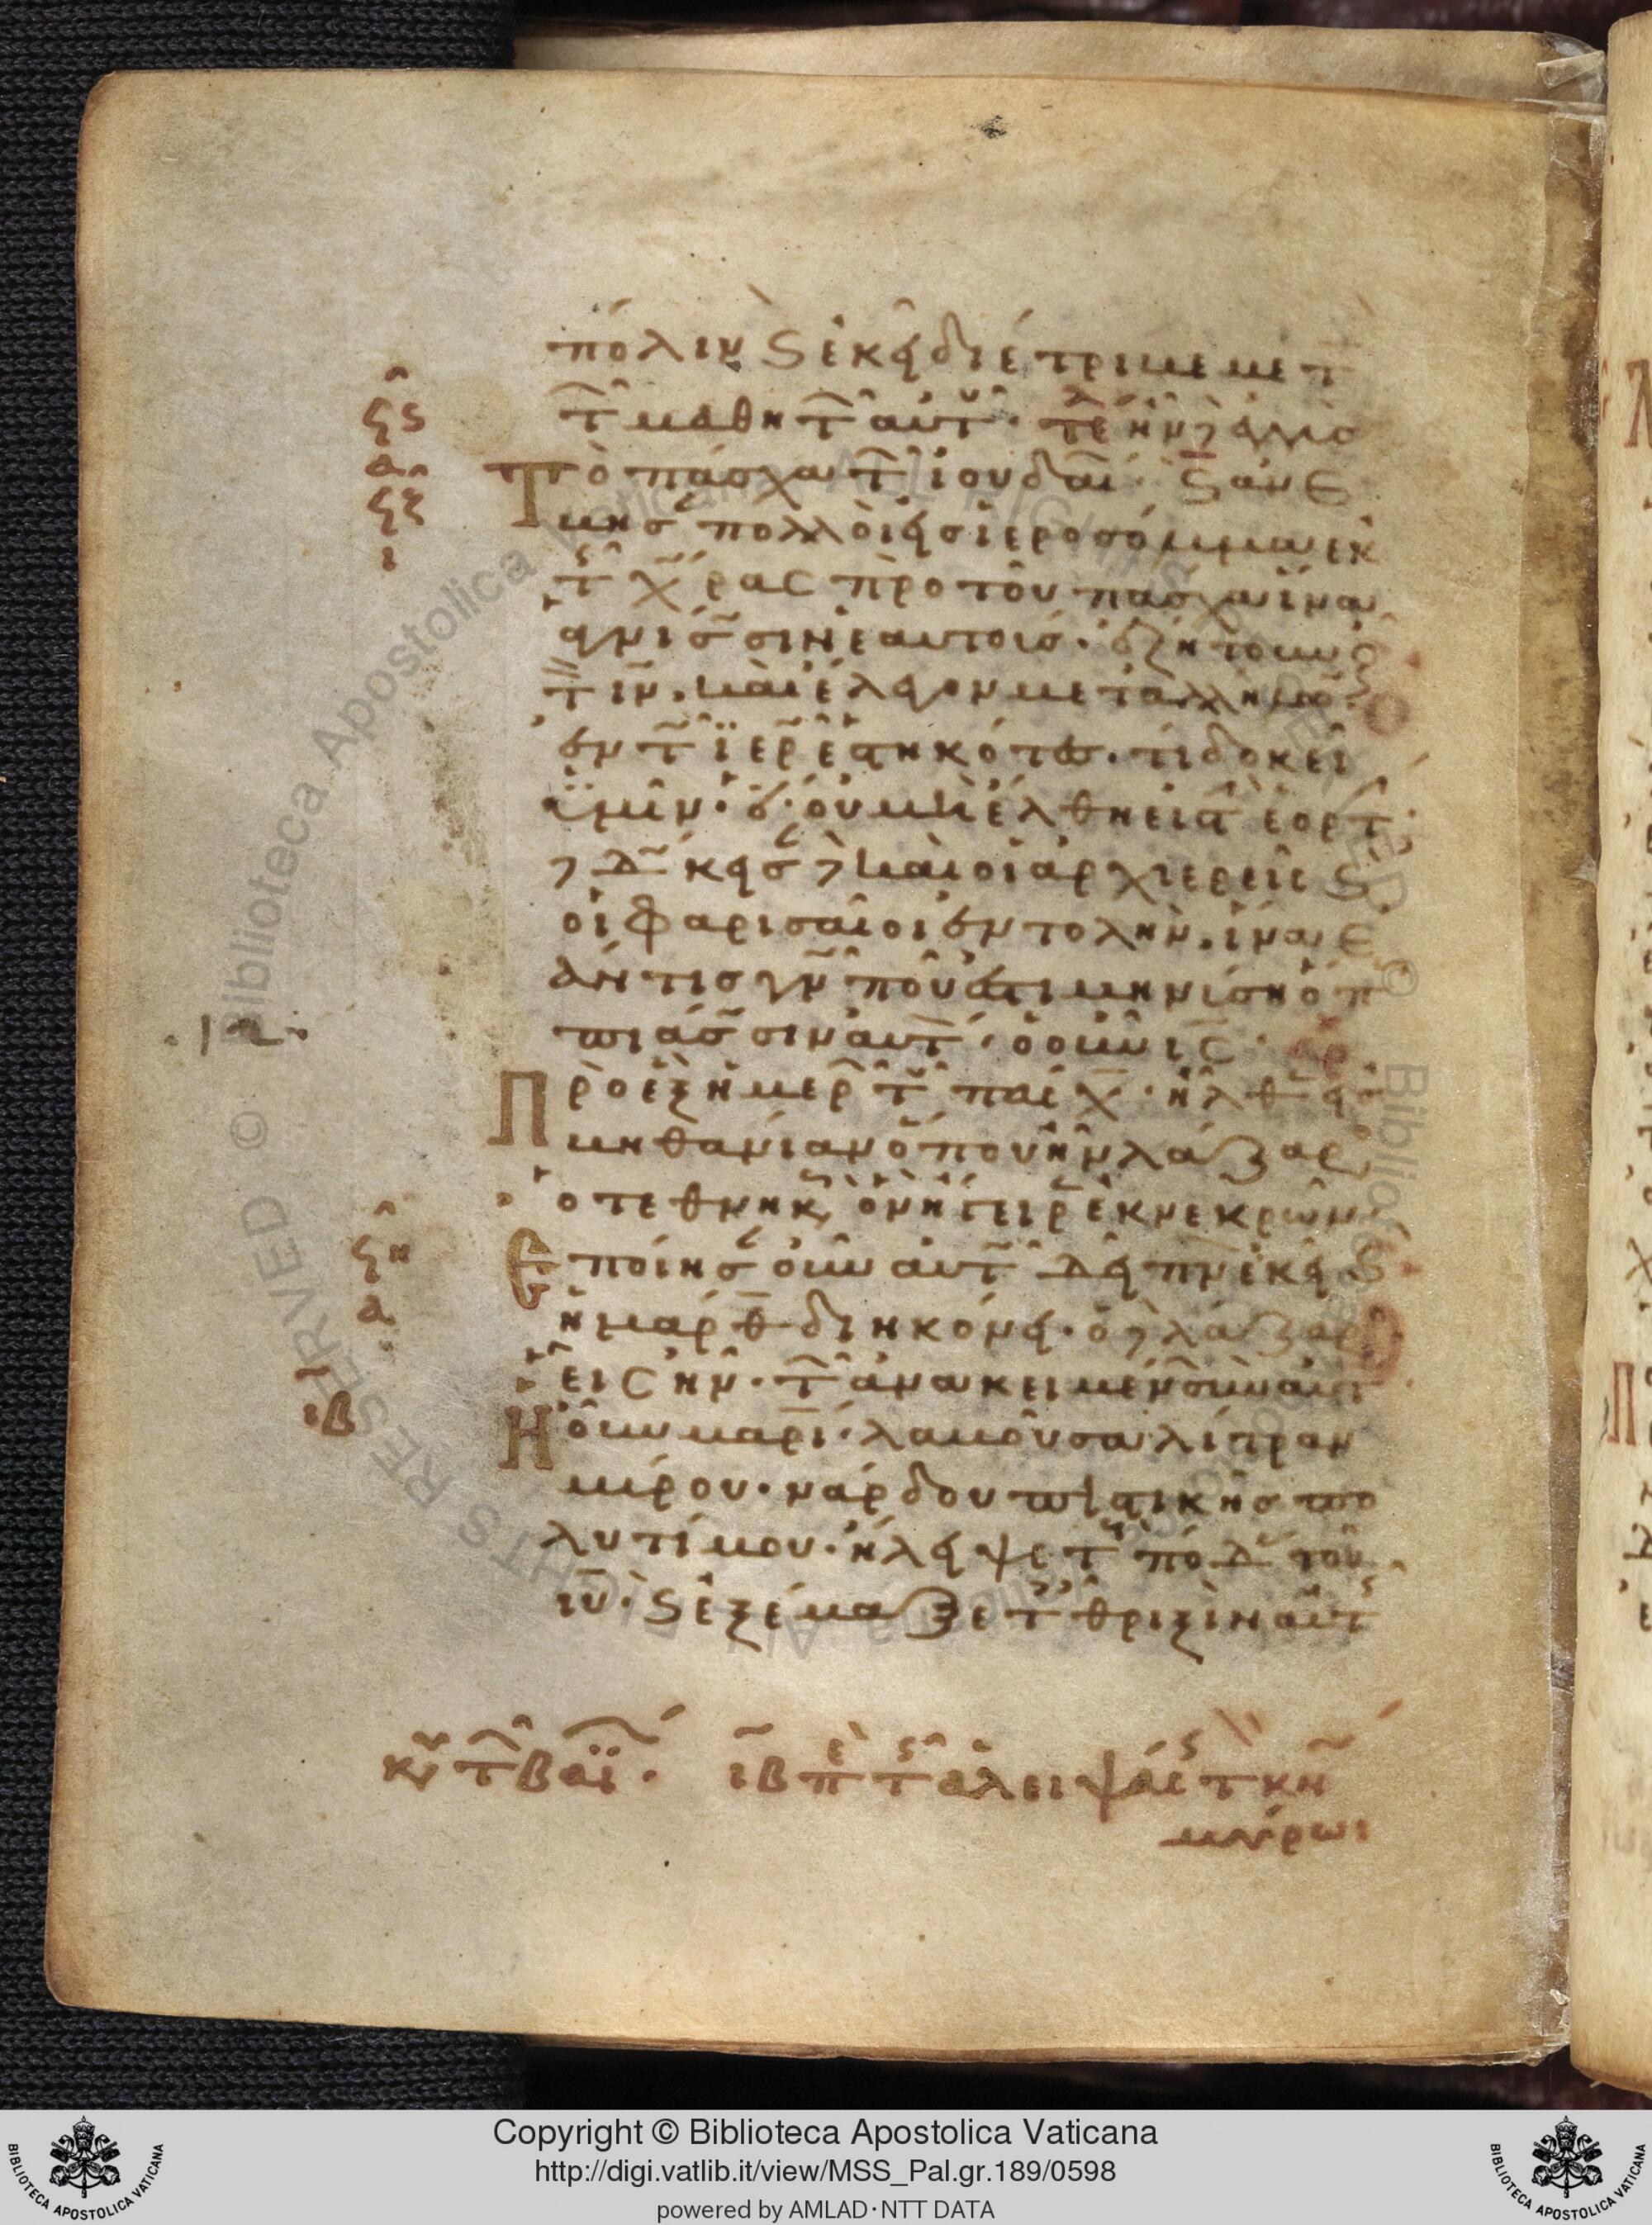 πόλιν ϛ ἐκεῖ διέτριβε μετ
τ μαθητ αυτ · τε ἦν δ ἐγγὺσ
Τὸ πάσχα τ ἰουδαί · ϛ ἀνέ
βησ πολλοὶ εἰσ ἱεροσόλυμα ἐκ
τ χ ρασ πρὸ τοῦ πάσχα ἵνα
ἁγνίσ σιν ἑαυτοισ · ἐζήτουν
τ ιν · καὶ ἔλεγον μετ ἀλλήλ
ἐν τ ἱερ ἑστηκότεσ · τί δοκεῖ
ὑμῖν · ὅ · οὐ μὴ ἔλθη εἰσ τ ἑορτ
δ δ κεισ δ καὶ οἱ ἀρχιερεῖσ ϛ
οἱ φαρισαῖοι ἐντολὴν · ἵνα ἐ
άν τισ γν ποῦ ἐστι μηνύση ὅπ
πιάσ σιν αυτ · ὁ οὖν ισ
Πρὸ ἓξ ἡμερ τ πάσχ · ἦλθ εισ
βηθανίαν ὅπου ἦν λάζαρ
ὁ τεθνηκ ὃν ἤγειρ ἐκ νεκρῶν
Ἐποίησ οὖν αυτ δεῖπν ἐκεῖ ϛ
ἡ μάρθ διηκόνει · ὁ δ λάζαρ
εἷσ ἦν · τ ἀνακειμέν σὺν αυτ
Ἡ οὖν μαρί · λαβοῦσα λίτραν
μύρου · νάρδου πιστικῆσ πο
λυτίμου · ἤλειψε τ πόδ τοῦ
ιυ · ϛ ἐξέμαξε τ θριξὶν αυτ
τ βαΐ · ιβ π τ ἀλειψάσ τ κν
μύρωι
ϟϛ
α
ϟζ
ι
ϟη
α
ιβ
Copyright © Biblioteca Apostolica Vaticana
http://digi.vatlib.it/view/MSS_Pal.gr.189/0598
powered by AMLAD·NTT DATA
BIBLIOTECA APOSTOLICA VATICANA
BIBLIOTECA APOSTOLICA VATICANA